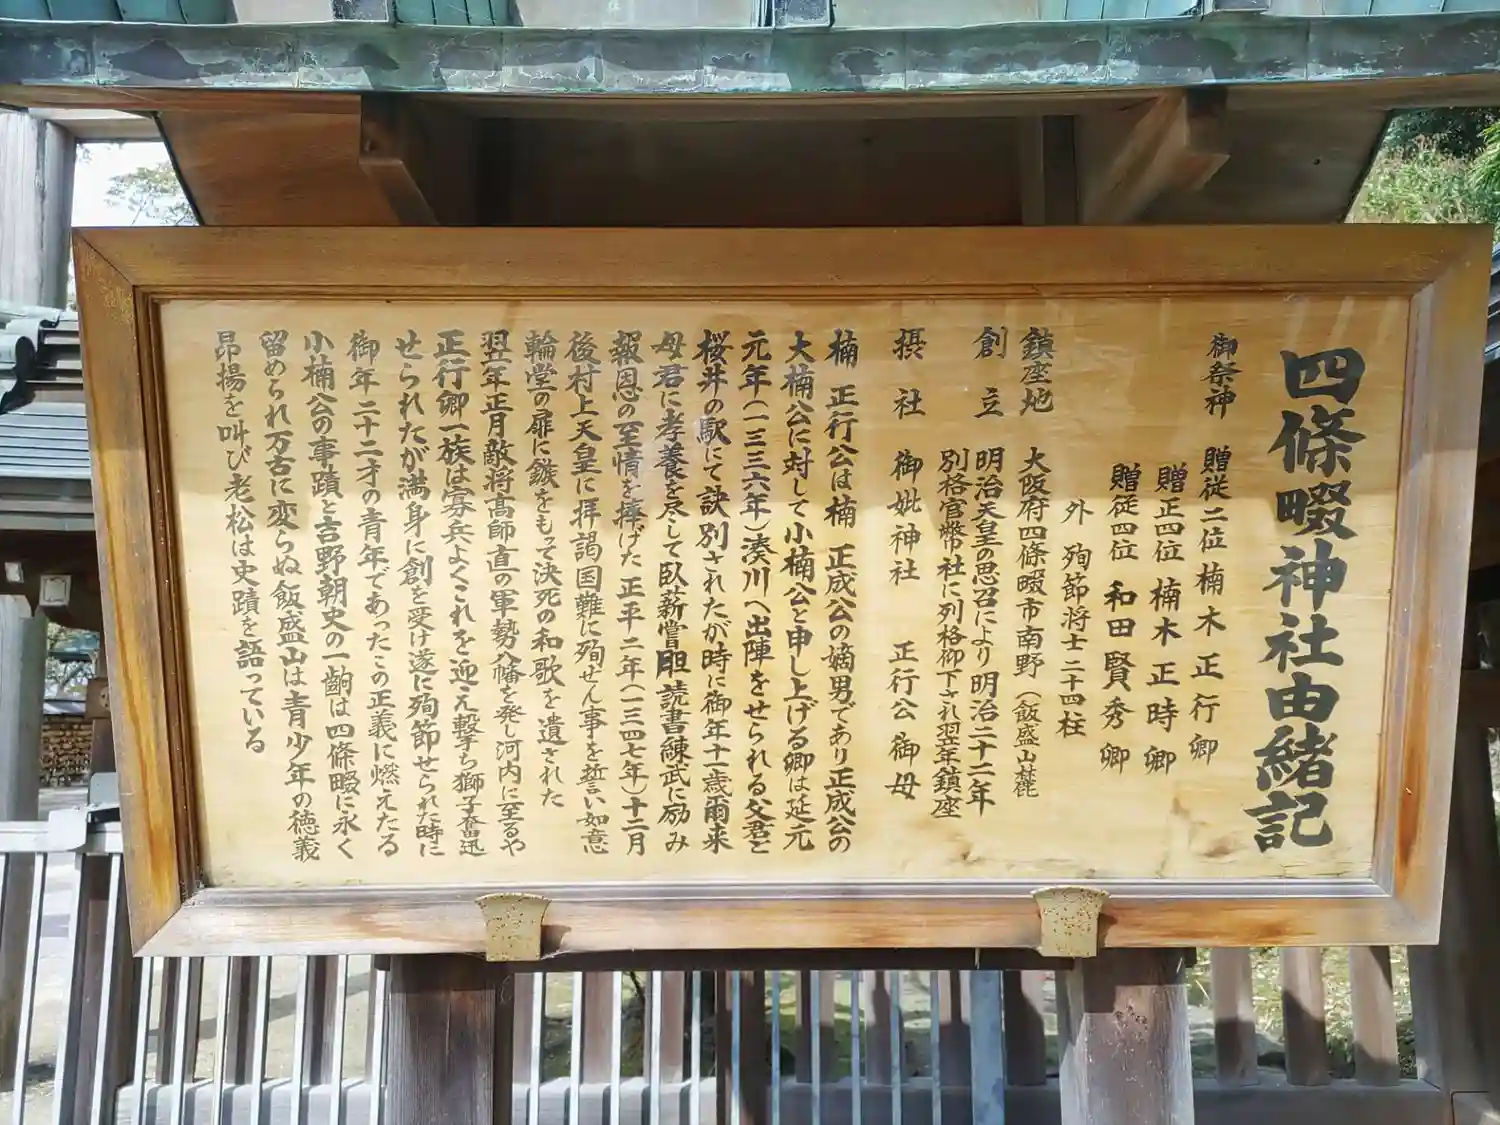 四條畷神社由緒記
御祭神 贈従二位楠木正行卿
贈正四位楠木正時卿
贈従四位和田賢秀卿
外 殉節将士二十四柱
鎮座地 大阪府四條畷市南野(飯盛山麓)
創立 明治天皇の思召により明治二十二年
別格官幣社に列格仰下され翌年鎮座
摂社 御妣神社 正行公御母
楠 正行公は楠 正成公の嫡男であり正成公の
大楠公に対して小楠公と申し上げる卿は延元
元年(一三三六年)湊川へ出陣をせられる父君と
桜井の駅にて訣別されたが時に御年十一歳爾来
母君に孝養を尽して臥薪嘗胆読書練武に励み
報恩の至情を捧げた正平二年(一三四七年)十二月
後村上天皇に拝謁国難に殉ぜん事を誓い如意
輪堂の扉に鏃をもって決死の和歌を遺された
翌年正月敵将高師直の軍勢八幡を発し河内に至るや
正行卿一族は寡兵よくこれを迎え撃ち獅子奮迅
せられたが満身に創を受け遂に殉節せられた時に
御年二十二才の青年であったこの正義に燃えたる
小楠公の事蹟と吉野朝史の一齣は四條畷に永く
留められ万古に変らぬ飯盛山は青少年の徳義
昂揚を叫び老松は史蹟を語っている